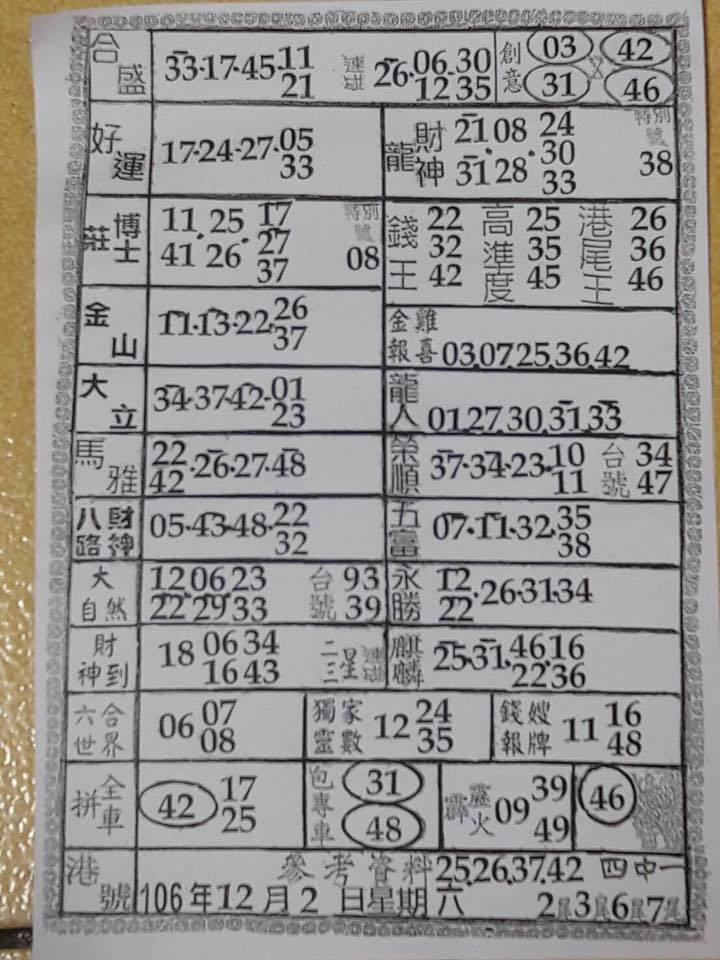 合盛 33·17·45·11 21 連碰 26·06·30 12·35 創意 03 42 31 46
好運 17·24·27·05 33 財神龍 21 08 24 31·28·30 33 特別號 38
博士莊 11 25 17 41·26·27 37 特別號 08 錢王 22 32 42 高準度 25 35 45 港尾王 26 36 46
金山 11·13·22·26 37 金雞報喜 03.07.25.36.42
大立 34·37·42·01 23 龍人 01.27.30.31.33
馬雅 22 42·26·27·48 榮順 37·34·23·10 11 台號 34 47
八路財神 05·43·48·22 32 五富 07·11·32·35 38
大自然 12 06 23 22·29·33 台號 93 39 永勝 12 22·26·31·34
財神到 18 06 34 16 43 二三星連碰 麒麟 25·31·46·16 22·36
六合世界 06 07 08 獨家靈數 12 24 35 錢嫂報牌 11 16 48
全車拼 42 17 25 包專車 31 48 霹靈火 09 39 49 46
港號 參考資料 25.26.37.42 四中一
106年12月2日星期六 2尾3尾6尾7尾